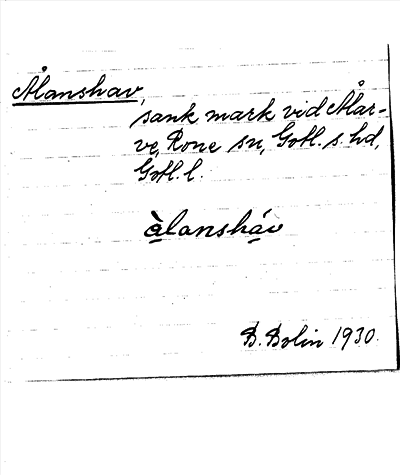 Ålanshav,
sank mark vid Ålar-
ve, Rone sn, Gotl. s. hd,
Gotl. l.
à̱lanshá̱v
B. Bolin 1930.